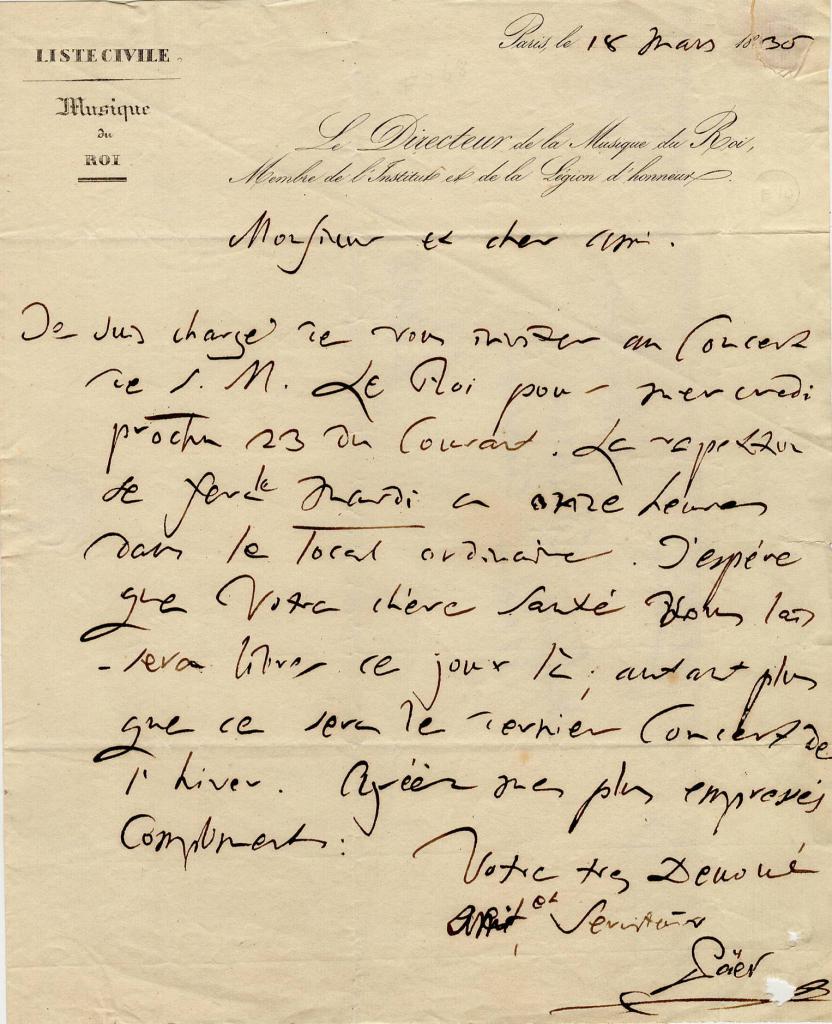 LISTE CIVILE.
Musique
du
ROI
Paris, le 18 Mars 1835
Le Directeur de la Musique du Roi,
Membre de l'Institut et de la Légion d'honneur.
Monsieur et cher ami.
Je suis chargé de vous inviter au Concert
de S. M. Le Roi pour mercredi
prochn 23 du Courant. La repetition
se fera le Mardi a onze heures
dans le local ordinaire. J'espére
que Votre chére Santé Vous lais
-sera libre ce jour là, autant plus
que ce sera le dernier Concert de
l'hiver. Agréér mes plus empressés
Compliments.
Votre tres Devoué
ami et Serviteur
Päer